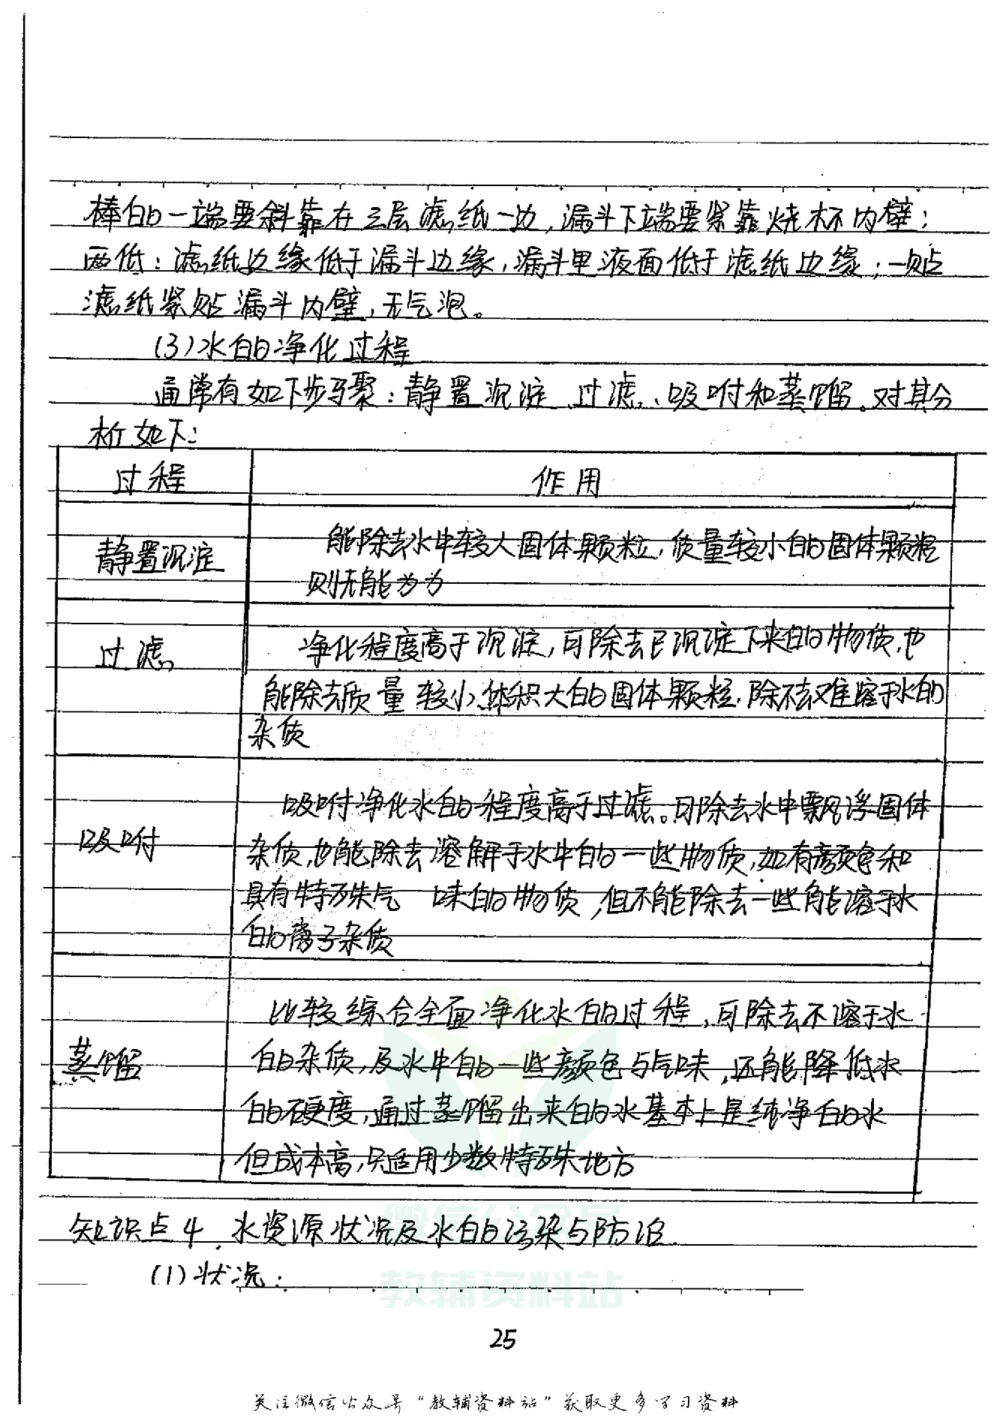 棒的一端要斜靠在三层滤纸一边,漏斗下端要紧靠烧杯内壁;
两低:滤纸边缘低于漏斗边缘,漏斗里液面低于滤纸边缘;一贴
滤纸紧贴漏斗内壁,无气泡。
(3)水的净化过程
通常有如下步骤:静置沉淀、过滤、吸附和蒸馏。对其分
析如下:
过程 作用
静置沉淀
能除去水中较大固体颗粒,质量较小的固体颗粒
则无能为为
过滤
净化程度高于沉淀,可除去已沉淀下来的物质,也
能除去质量较小、体积大的固体颗粒,除不去难溶于水的
杂质
吸附
吸附净化水的程度高于过滤。可除去水中飘浮固体
杂质,也能除去溶解于水中的一些物质,如有颜色和
具有特殊气味的物质,但不能除去一些能溶于水
的离子杂质
蒸馏
比较综合全面净化水的过程,可除去不溶于水
的杂质,及水中的一些颜色与气味,还能降低水
的硬度,通过蒸馏出来的水基本上是纯净的水
但成本高,只适用少数特殊地方
知识点4.水资源状况及水的污染与防治
(1)状况:
教辅资料站
25
关注微信公众号“教辅资料站”获取更多学习资料